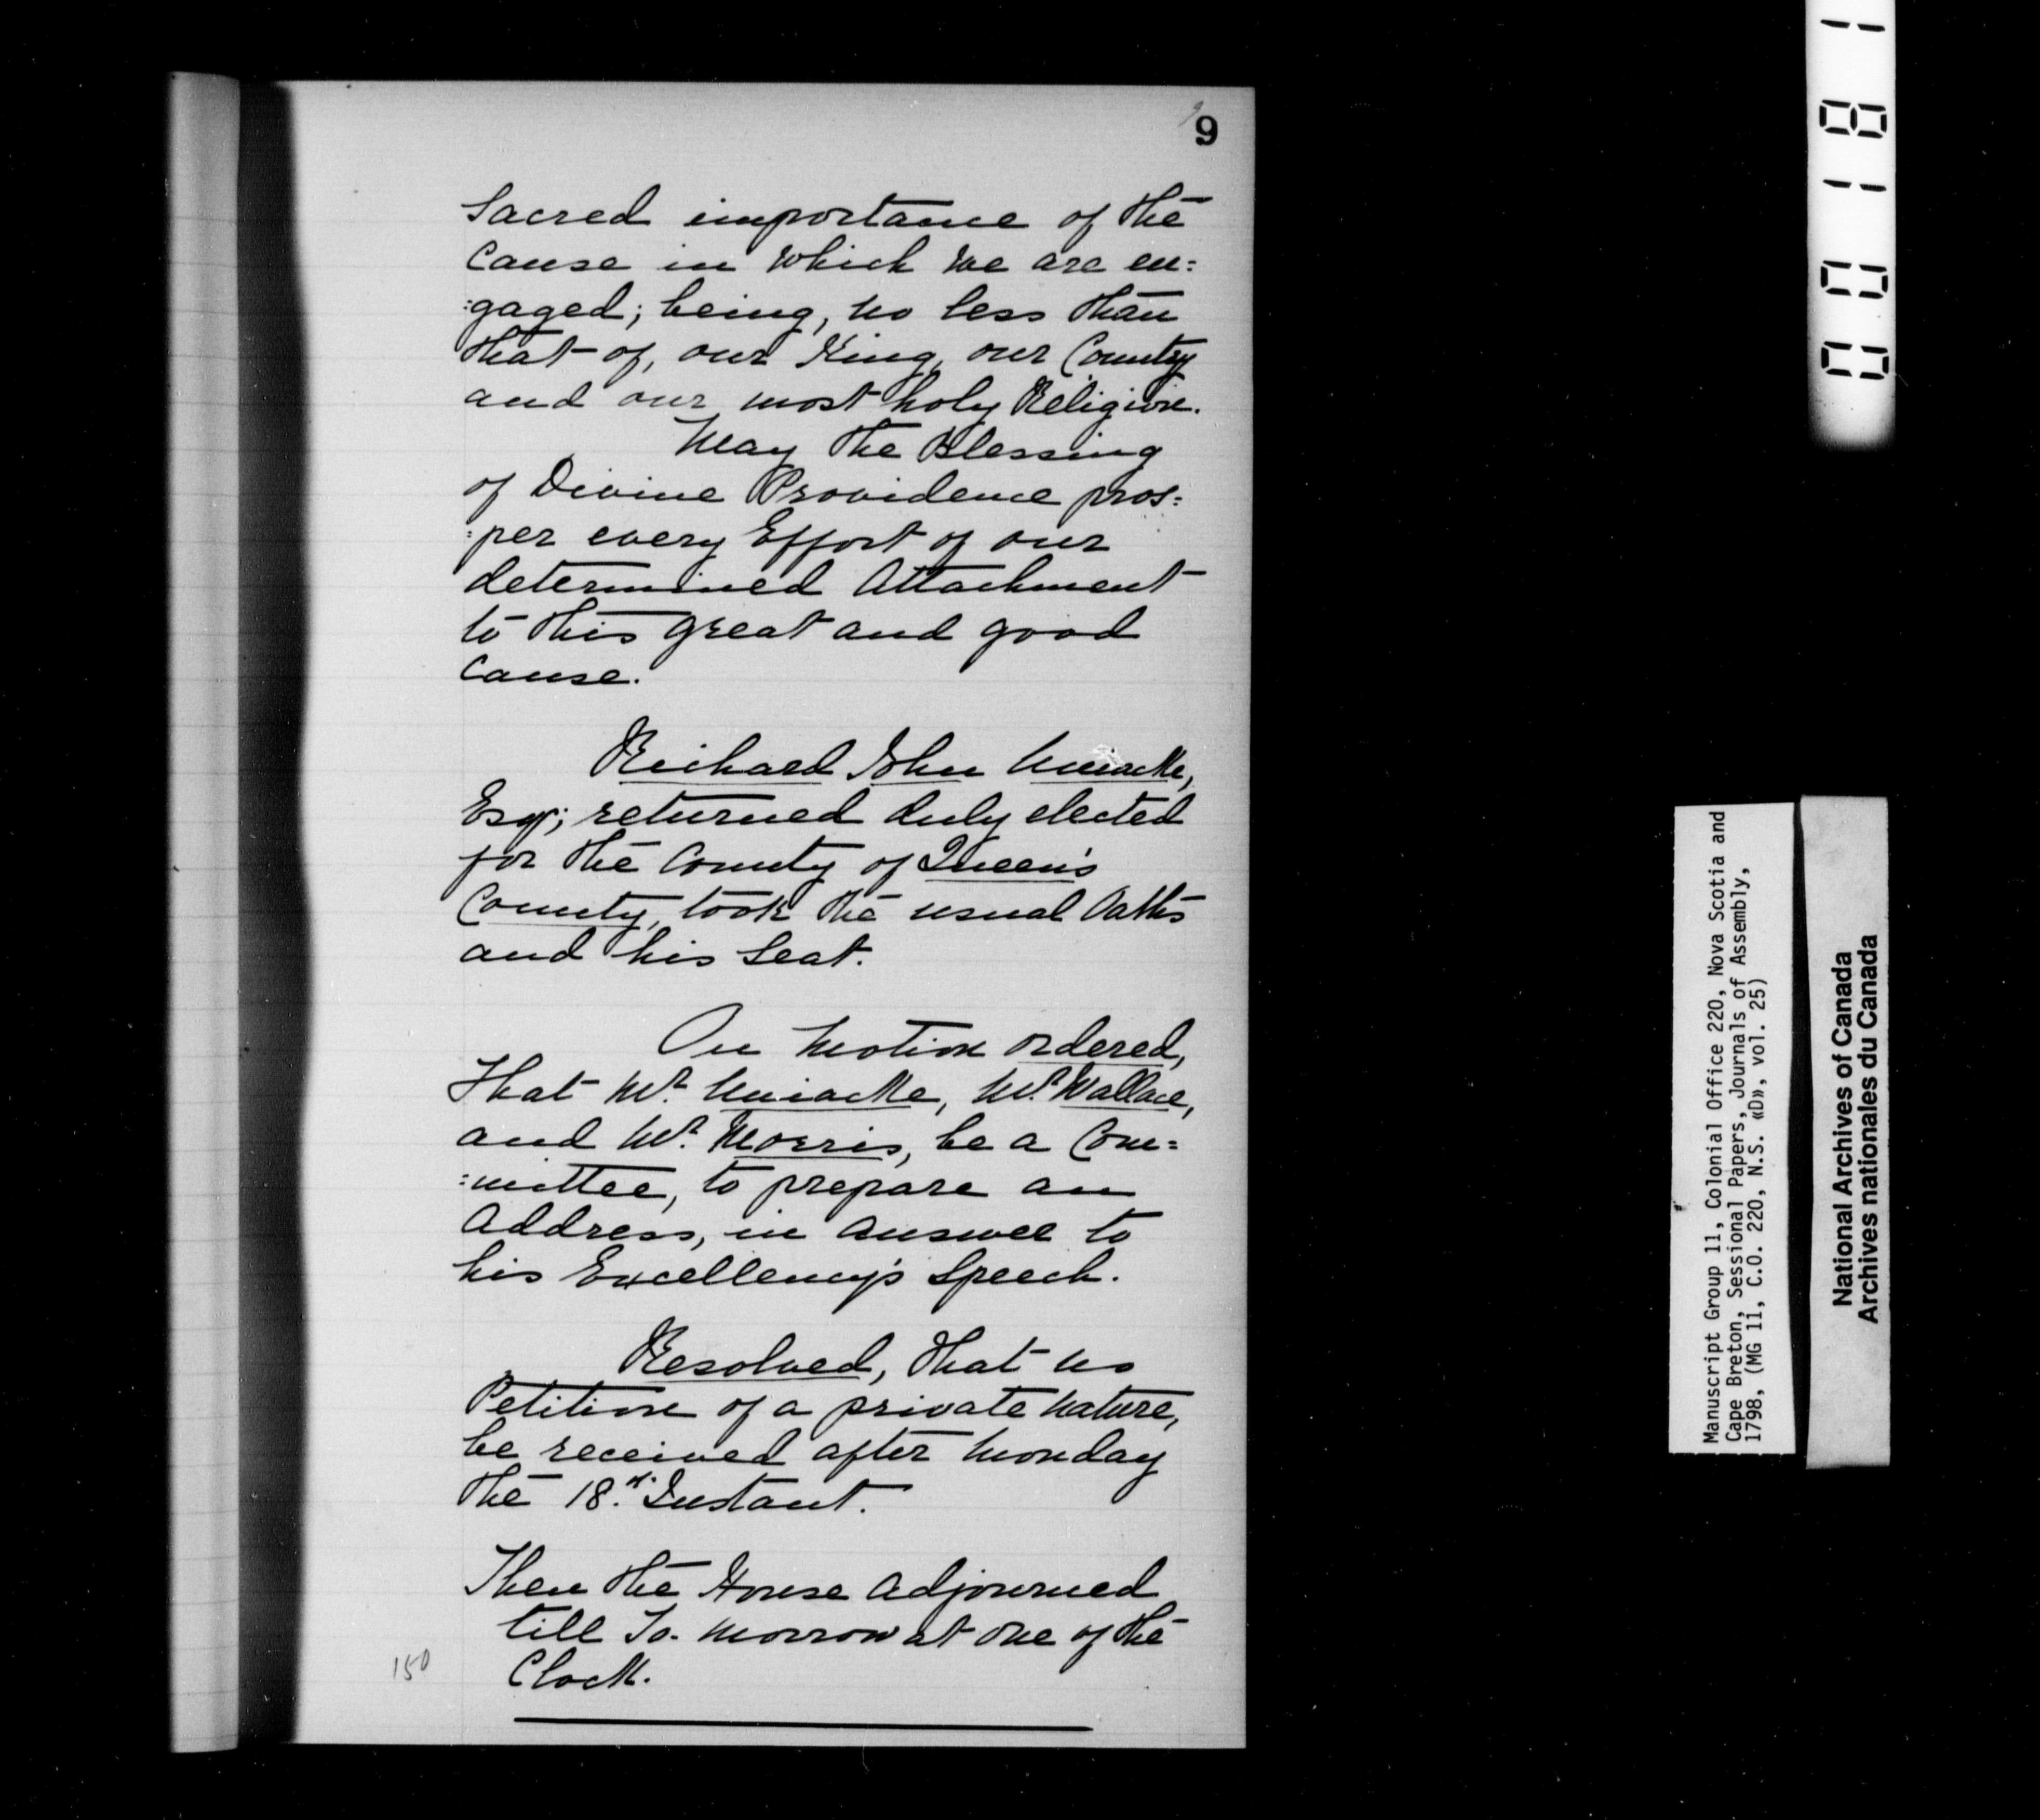 9
9
Sacred importance of the
Cause in which we are en:
:gaged; being, no less than
that of, our King, our Country
and our most holy Religion.
May the Blessing
of Divine Providence pros:
:per every Effort of our
determined Attachment
to this great and good
Cause.
Richard John Uniacke,
Esqr; returned duly elected
for the County of Queen's
County, took the usual Oaths
and his Seat.
On Motion ordered,
That Mr. Uniacke, Mr. Wallace,
and Mr. Morris, be a Com:
:mittee, to prepare an
Address, in Answer to
his Excellency's Speech.
Resolved, that no
Petition of a private Nature,
be received after Monday
the 18th. Instant.
Then the House adjourned
till To-morrow at One of the
Clock.
150
00181
Manuscript Group 11, Colonial Office 220, Nova Scotia and
Cape Breton, Sessional Papers, Journals of Assembly,
1798, (MG 11, C.O. 220, N.S. «D», vol. 25)
National Archives of Canada
Archives nationales du Canada